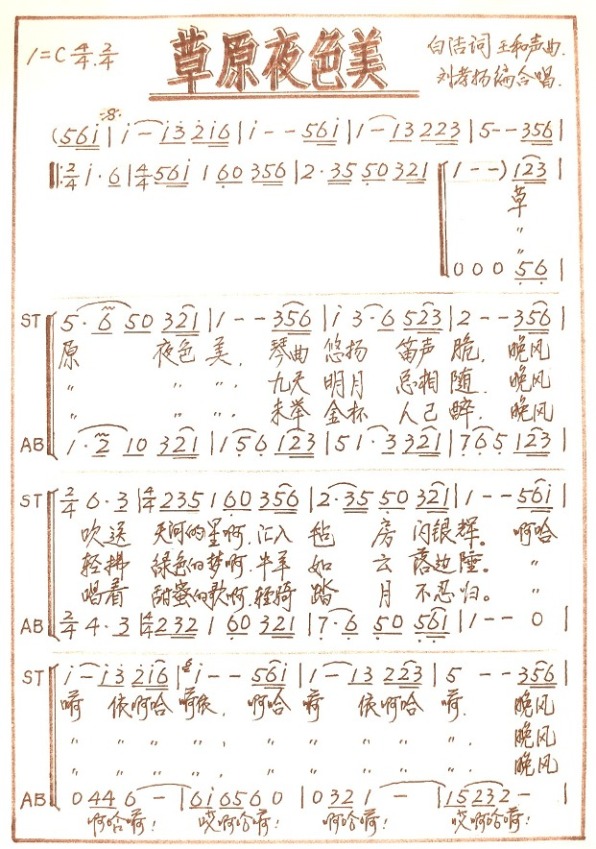 1=C 4/4 2/4 草原夜色美 白洁词 王和声曲.
刘孝扬编合唱.
(5 6 i | i - i 3 2 i 6 | i - - 5 6 i | 1 - 1 3 2 2 3 | 5 - - 3 5 6 |
2/4 i · 6 | 4/4 5 6 i 1 6 0 3 5 6 | 2 · 3 5 5 0 3 2 1 | 1 - - ) 1 2 3 |
草
"
"
0 0 0 5 6 |
ST 5 · 6 5 0 3 2 1 | 1 - - 3 5 6 | i 3 · 6 5 2 3 | 2 - - 3 5 6 |
原 夜色美, 琴曲悠扬 笛声脆, 晚风
" " ", 九天明月 总相随. 晚风
" " ", 未举金杯 人已醉. 晚风
AB 1 · 2 1 0 3 2 1 | 1 5 6 1 2 3 | 5 1 · 3 3 2 1 | 7 6 5 1 2 3 |
ST 2/4 6 · 3 | 4/4 2 3 5 1 6 0 3 5 6 | 2 · 3 5 5 0 3 2 1 | 1 - - 5 6 i |
吹送 天河的星啊, 汇入毡房 闪银辉。 啊哈
轻拂 绿色的梦啊, 牛羊如云 落边陲。 "
唱着 甜蜜的歌啊, 轻骑踏月 不忍归。 "
AB 2/4 4 · 3 | 4/4 2 3 2 1 6 0 3 2 1 | 7 · 6 5 0 5 6 1 | 1 - - 0 |
ST i - i 3 2 i 6 | i - - 5 6 i | 1 - 1 3 2 2 3 | 5 - - 3 5 6 |
嗬 依啊哈嗬依, 啊哈嗬 依啊哈嗬. 晚风
" " " " ", " " " " " ". 晚风
" " " " ", " " " " " ". 晚风
AB 0 4 4 6 - | 6 i 6 5 6 0 | 0 3 2 1 - | 1 5 2 3 2 - |
啊哈嗬! 哎啊哈嗬! 啊哈嗬! 哎啊哈嗬!